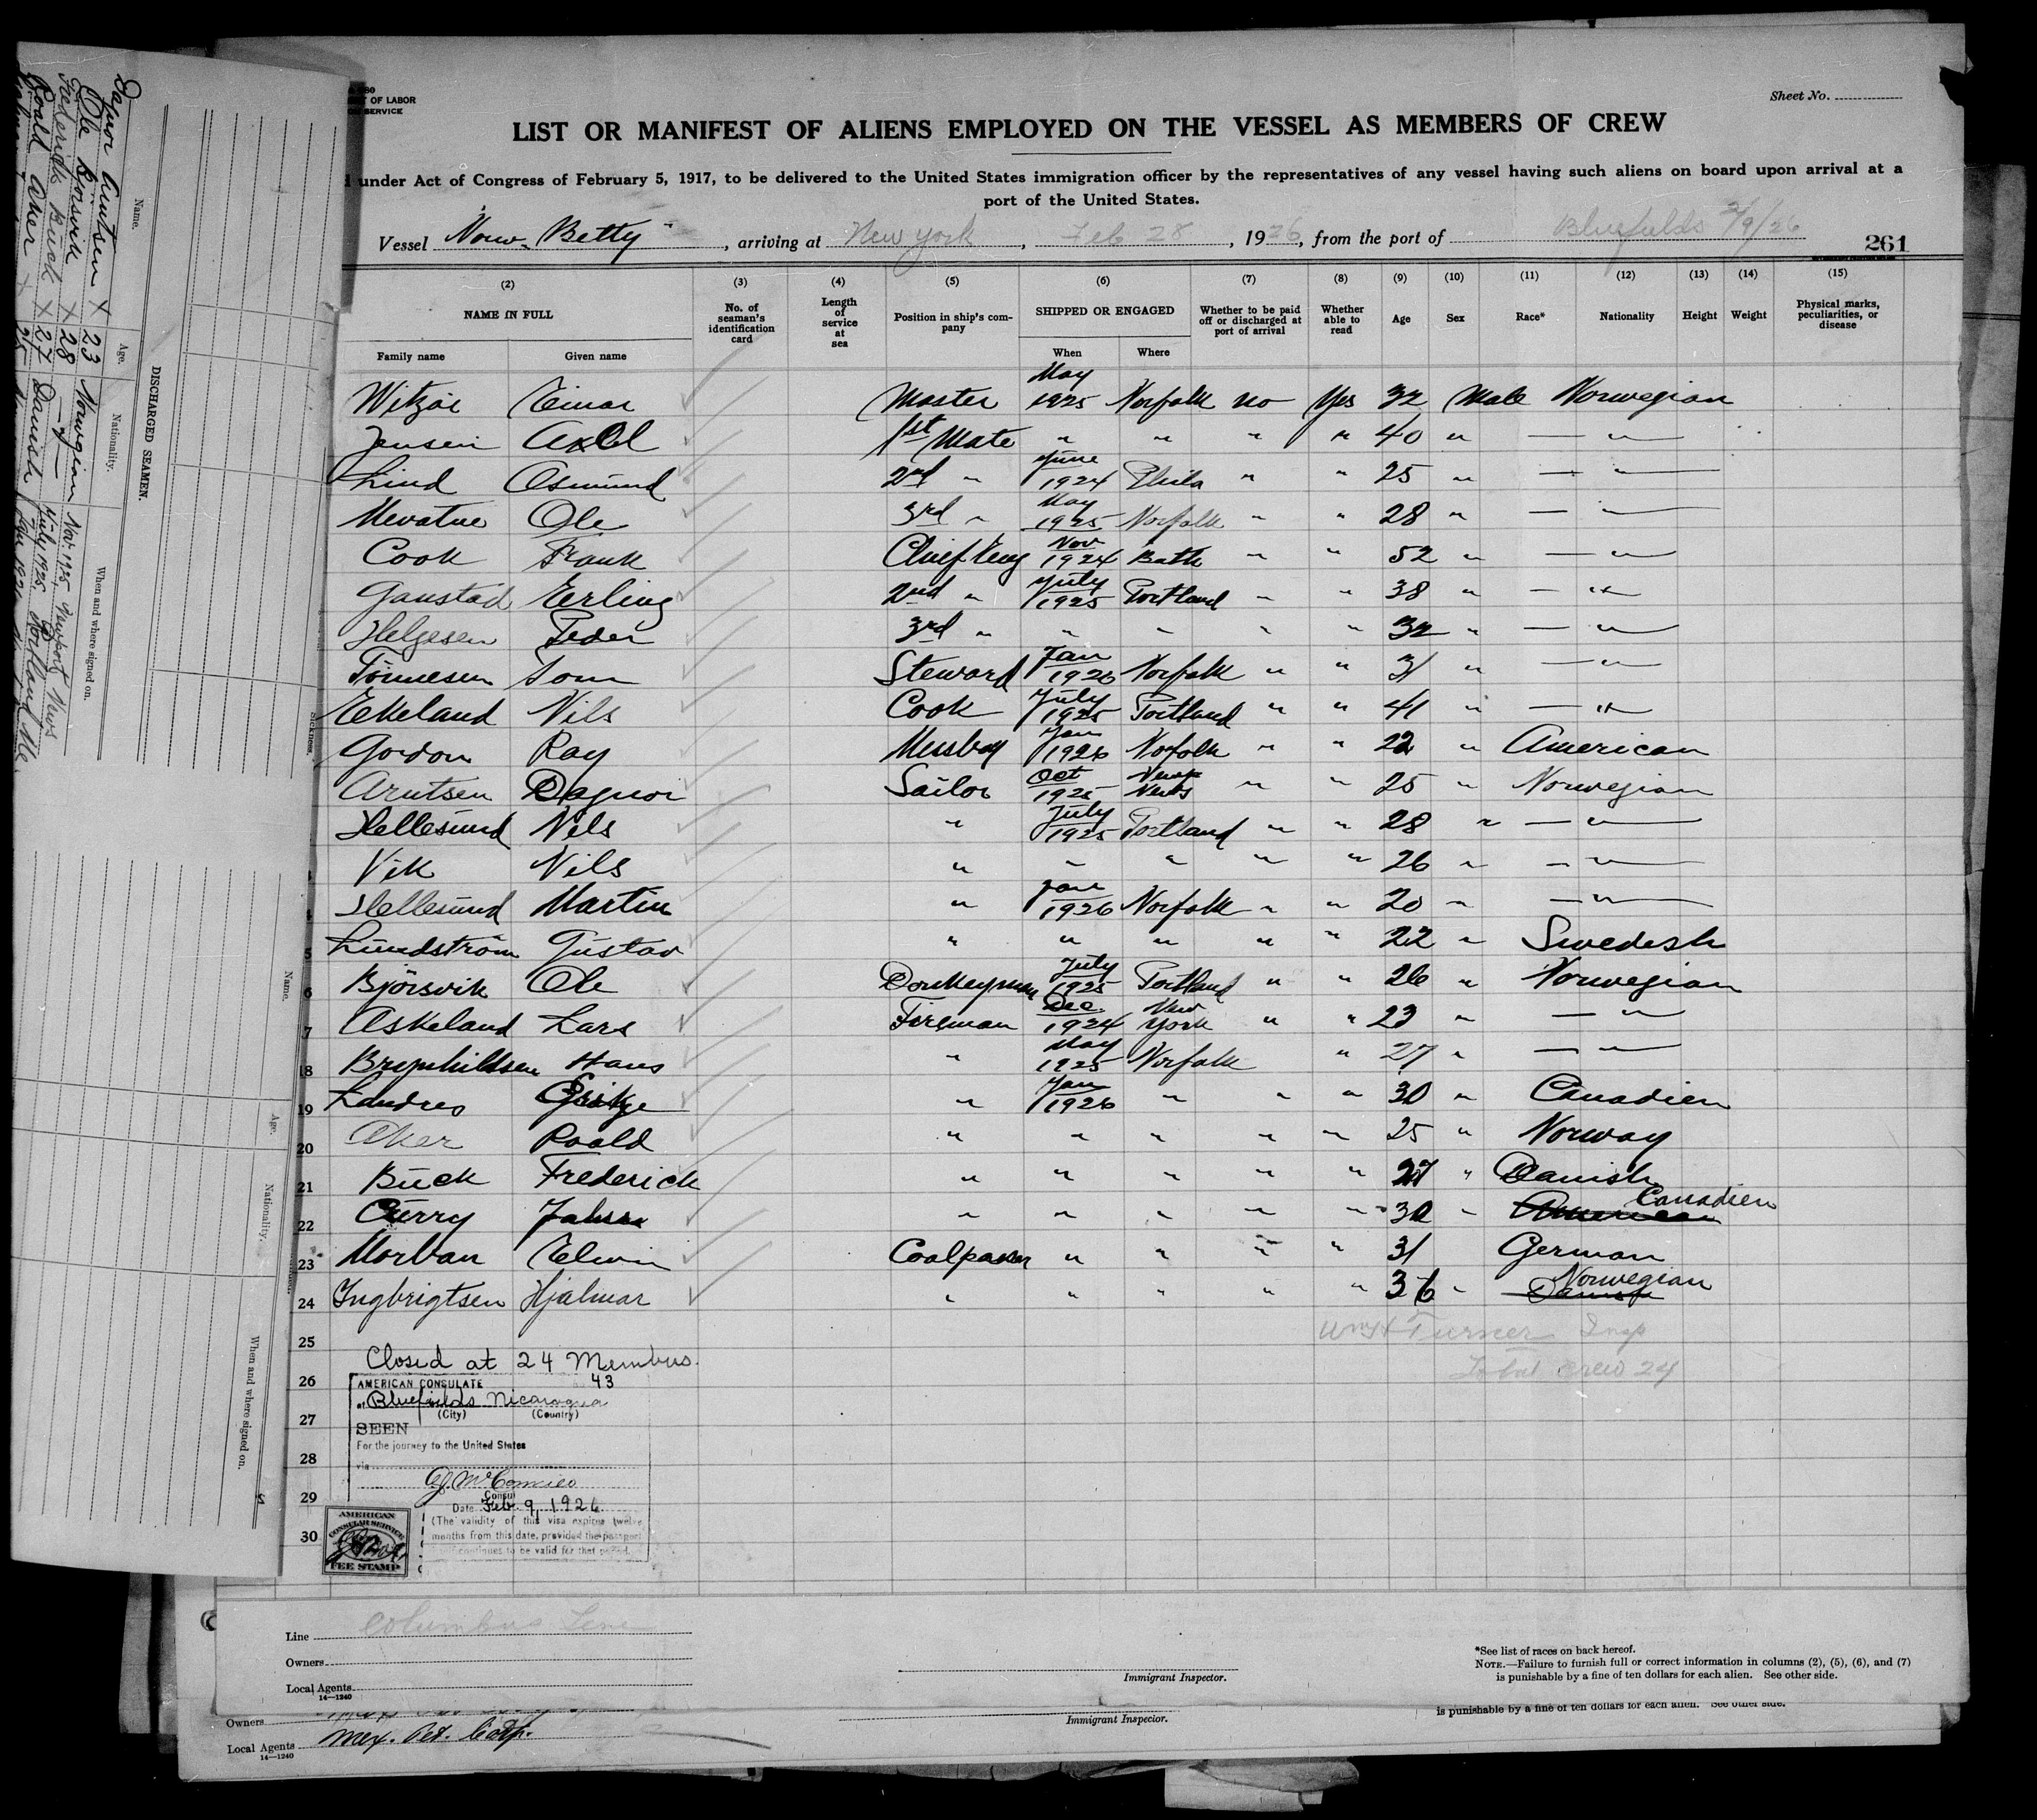 680
OF LABOR
SERVICE
Sheet No.
LIST OR MANIFEST OF ALIENS EMPLOYED ON THE VESSEL AS MEMBERS OF CREW
under Act of Congress of February 5, 1917, to be delivered to the United States immigration officer by the representatives of any vessel having such aliens on board upon arrival at a
port of the United States.
Vessel Norw. Betty, arriving at New York, Feb 28, 1926, from the port of Bluefields 2/9/26
261
(2) (3) (4) (5) (6) (7) (8) (9) (10) (11) (12) (13) (14) (15)
NAME IN FULL No. of seaman's identification card Length of service at sea Position in ship's company SHIPPED OR ENGAGED Whether to be paid off or discharged at port of arrival Whether able to read Age Sex Race* Nationality Height Weight Physical marks, peculiarities, or disease
Family name Given name When Where
Einar Master May 1925 Norfolk no Yes 32 Male Norwegian
Jensen Axel 1st Mate " " " " 40 " — " —
Lind Osmund 2nd " June 1924 Phila " " 25 " — " —
Mevatne Ole 3rd " May 1925 Norfolk " " 28 " — " —
Cook Frank Chief Eng Nov 1924 Bath " " 52 " — " —
Ganstad Erling 2nd " July 1925 Portland " " 38 " — " —
Helgesen Peder 3rd " " " " " 32 " — " —
Tönnesen Tom Steward Jan 1926 Norfolk " " 31 " — " —
Ekeland Nils Cook July 1925 Portland " " 41 " — " —
Gordon Ray Messboy Jan 1926 Norfolk " " 22 " American
Arntsen Dagnor Sailor Oct 1925 News " " 25 " Norwegian
Hellesund Nils " July 1925 Portland " " 28 " — " —
Vik Nils " " " " " 26 " — " —
Hellesund Martin " Jan 1926 Norfolk " " 20 " — " —
5 Lundström Gustav " " " " " 22 " Swedesh
6 Björsvik Ole Donkeyman July 1925 Portland " " 26 " Norwegian
7 Askeland Lars Fireman Dec 1924 New York " " 23 " — " —
18 Brynhildsen Hans " May 1925 Norfolk " 27 " — " —
19 Landres " Jan 1926 " " " 30 " Canadien
20 Aker Roald " " " " " 25 " Norway
21 Buck Frederick " " " " " 27 " Danish
22 Curry " " " " " 30 " American Canadien
23 Morvan Elwin Coalpasser " " " " 31 German
24 Ingbrigtsen Hjalmar " " " " " 36 " Danish Norwegian
25 Turner Insp
Closed at 24 Members.
Total crew 24
26 AMERICAN CONSULATE 43
at Bluefields Nicaragua
(City) (Country)
27 SEEN
For the journey to the United States
28 via
29 Consul
Date Feb. 9, 1926.
(The validity of this visa expires twelve
30 months from this date, provided the passport
continues to be valid for that period.
AMERICAN
CONSULAR SERVICE
FEE STAMP
Line Columbus Line
Owners
Local Agents
14—1240
Immigrant Inspector.
*See list of races on back hereof.
NOTE.—Failure to furnish full or correct information in columns (2), (5), (6), and (7)
is punishable by a fine of ten dollars for each alien. See other side.
is punishable by a fine of ten dollars for each alien. See other side.
Owners
Immigrant Inspector.
Local Agents Mex. Pet. Corp.
14—1240
DISCHARGED SEAMEN.
Name. Age. Nationality. When and where signed on.
Dagnor Arntsen X 23 Norwegian Nov. 1925 Newport News
Ole Bjorsvik X 28 — " — July 1925 Portland Me.
Frederick Buck X 27 Danish
Roald Aker X 25
Name. Age. Nationality. When and where signed on.
sickness.